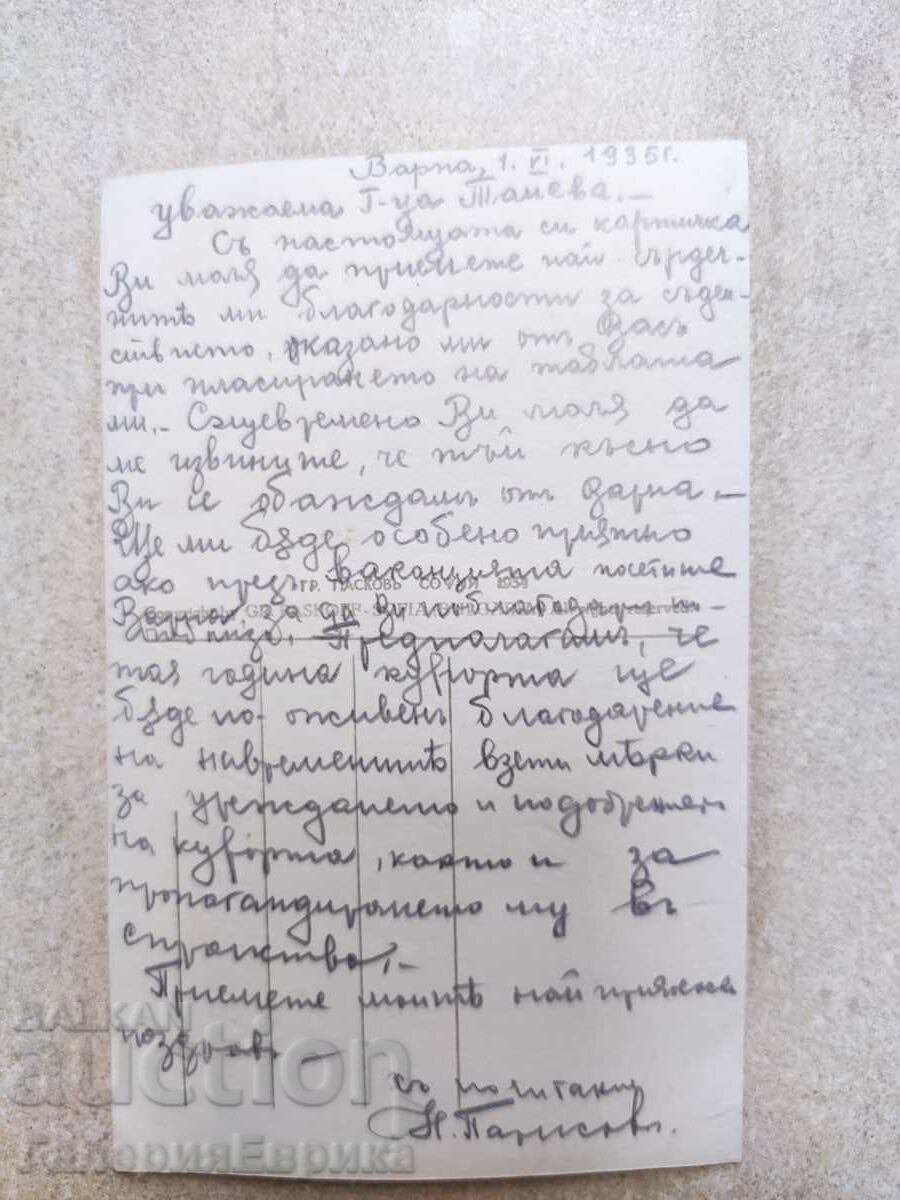 Варна, 1. VI. 1935г.
уважаема Г-ца Танева.—
Съ настоящата си картичка
Ви моля да приемете най-сърдеч-
нитѣ ми благодарности за съдей-
ствието, указано ми отъ Васъ
при пласирането на таблата
ми.- Сѫщевремено Ви моля да
ме извините, че тъй късно
Ви се обаждамъ отъ Варна.—
Ще ми бѫде особено приятно
ако презъ ваканцията посетите
ГР. ПАСКОВЪ СОФИЯ 1934
Варна, за да Ви поблагодаря и
Предполагамъ, че
тая година курорта ще
бѫде по-оживенъ благодарение
на навременнитѣ взети мѣрки
за уреждането и подобрение
на курорта, както и за
пропагандирането му въ
странство.-
Приемете моитѣ най
поздрави —
съ почитание
Н.
BALKAN
auction
ГалерияЕврика